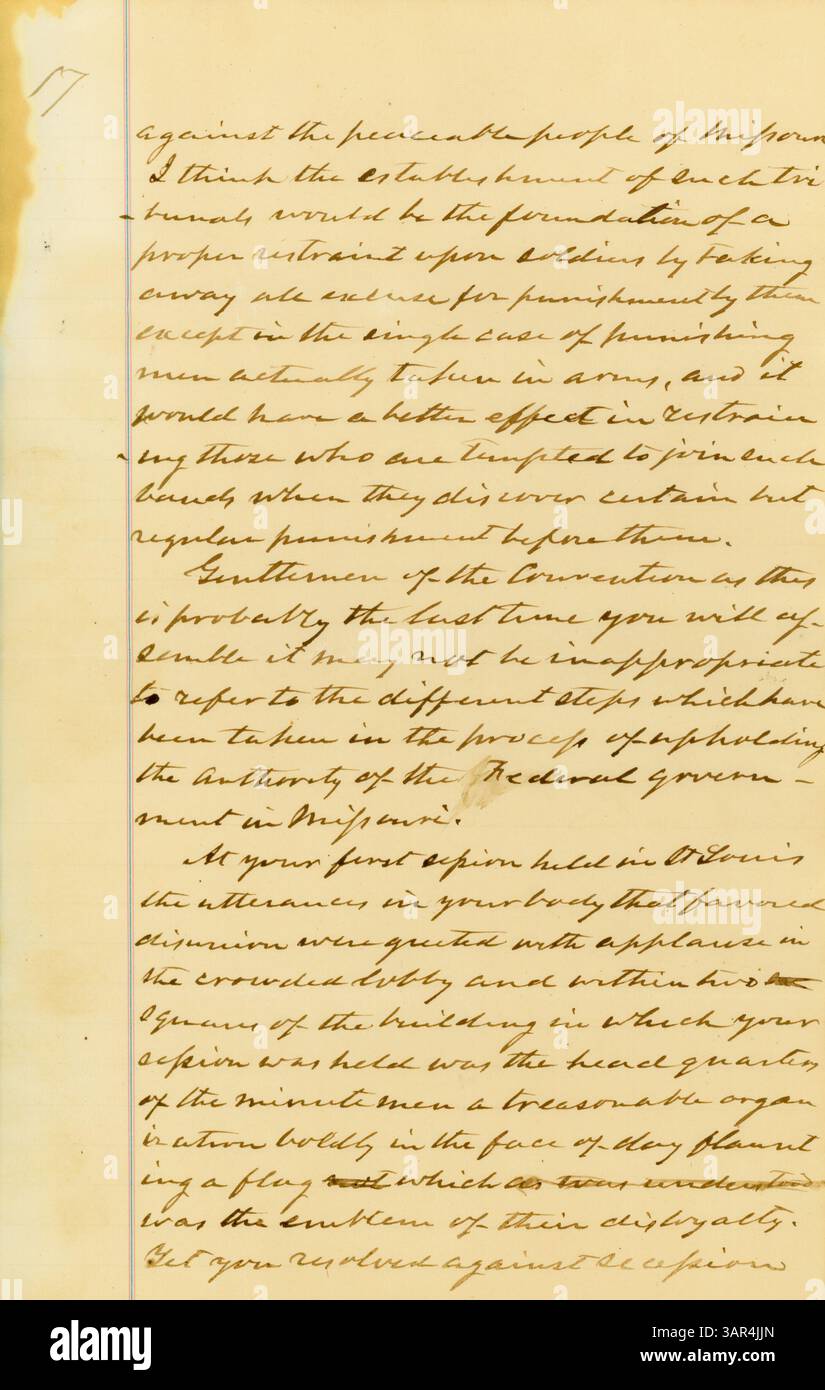 17
against the peaceable people of Missouri
I think the establishment of such tri
-bunals would be the foundation of a
proper restraint upon soldiers by taking
away all excuse for punishment by them
except in the single case of punishing
men actually taken in arms, and it
would have a better effect in restrain
-ing those who are tempted to join such
bands when they discover certain but
regular punishment before them.
Gentlemen of the Convention as this
is probably the last time you will as-
semble it may not be inappropriate
to refer to the different steps which have
been taken in the process of upholding
the authority of the Federal govern-
ment in Missouri.
At your first session held in St Louis
the utterances in your body that favored
disunion were greeted with applause in
the crowded lobby and within two
squares of the building in which your
session was held was the head quarters
of the minute men a treasonable organ
ization boldly in the face of day flaunt
ing a flag not which as was understood
was the emblem of their disloyalty.
Yet you resolved against secession
alamy
Image ID: 3AR4JJN
www.alamy.com